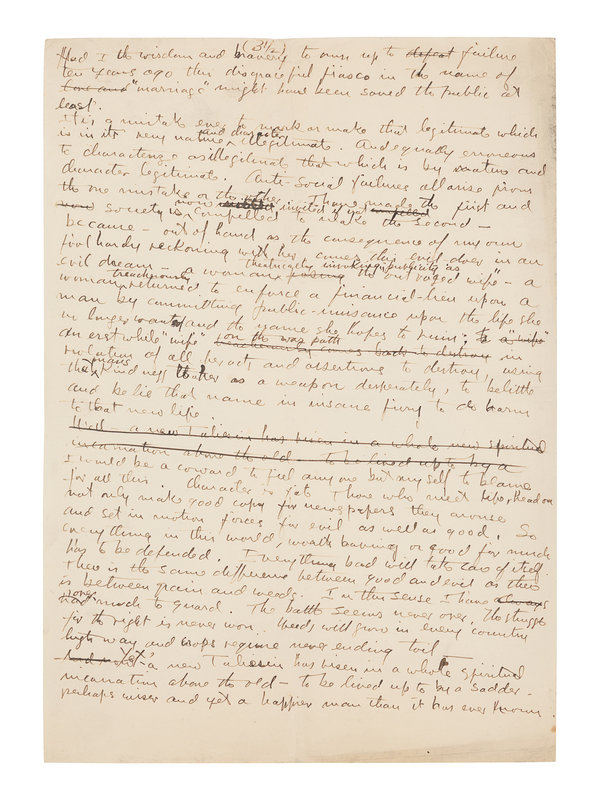 (3½)
Had I the wisdom and bravery to own up to defeat failure
ten years ago this disgraceful fiasco in the name of
love and "marriage" might have been saved the public at
least.
It is a mistake ever to mark or make that legitimate which
is in its very nature and character illegitimate. And equally erroneous
to characterize as illegitimate that which is by nature and
character legitimate. Anti-Social failures all arise from
the one mistake or the other. I have made the first and
now society is now invited if not compelled to make the second –
because – out of hand as the consequence of my own
fool hardy reckoning with her comes this evil-doer in an
evil dream – a woman theatrically invoking publicity as posing the outraged "wife" – a
woman treacherously returned to enforce a financial-lien upon a
man by committing public-nuisance upon the life she
no longer wanted and the name she hopes to ruin; to a "wife"
an erstwhile "wife" on the war path treacherously comes back to destroy in
violation of all pacts and assertions to destroy, using
the name kindness to her as a weapon desperately, to belittle
and belie that name in insane fury to do harm
to that new life.
Well – a new Taliesin has risen in a whole new spiritual
incarnation above the old – to be lived up to by a
I would be a coward to feel any one but myself to blame
for all this. Character is fate. Those who meet life, head on
not only make good copy for newspapers they arouse
and set in motion forces for evil as well as good. So
everything in this world, worth having or good for much
has to be defended. Everything bad will take care of itself
There is the same difference between good and evil as there
is between grain and weeds. In this sense I have always
had much to guard. The battle seems never over, the struggle
for the right is never won. Weeds will grow in every country
high way and crops require never ending toil
And now Yet a new Taliesin has risen in a whole spiritual
incarnation above the old – to be lived up to by a sadder –
perhaps wiser and yet a happier man than it has ever known.